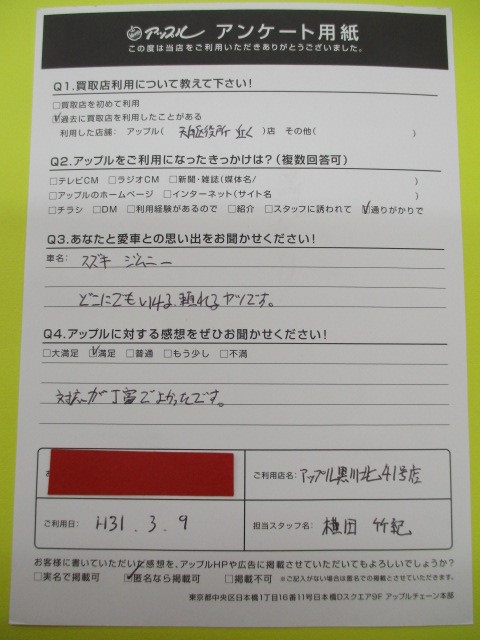 アップル アンケート用紙
この度は当店をご利用いただきありがとうございました。
Q1.買取店利用について教えて下さい!
□買取店を初めて利用
☑過去に買取店を利用したことがある
利用した店舗: アップル( 天白区役所 近く )店 その他( )
Q2.アップルをご利用になったきっかけは?(複数回答可)
□テレビCM □ラジオCM □新聞・雑誌(媒体名/ )
□アップルのホームページ □インターネット(サイト名 )
□チラシ □DM □利用経験があるので □紹介 □スタッフに誘われて ☑通りがかりで
Q3.あなたと愛車との思い出をお聞かせください!
車名: スズキ ジムニー
どこにでもいける 頼れるヤツです。
Q4.アップルに対する感想をぜひお聞かせください!
□大満足 ☑満足 □普通 □もう少し □不満
対応が丁寧でよかったです。
お
ご利用店名: アップル黒川北41号店
ご利用日 H31.3.9
担当スタッフ名:
お客様に書いていただいた感想を、アップルHPや広告に掲載させていただいてもよろしいでしょうか?
□実名で掲載可 ☑匿名なら掲載可 □掲載不可 ※ご記入がない場合は匿名での掲載とさせていただきます。
東京都中央区日本橋1丁目16番11号日本橋Dスクエア9F アップルチェーン本部